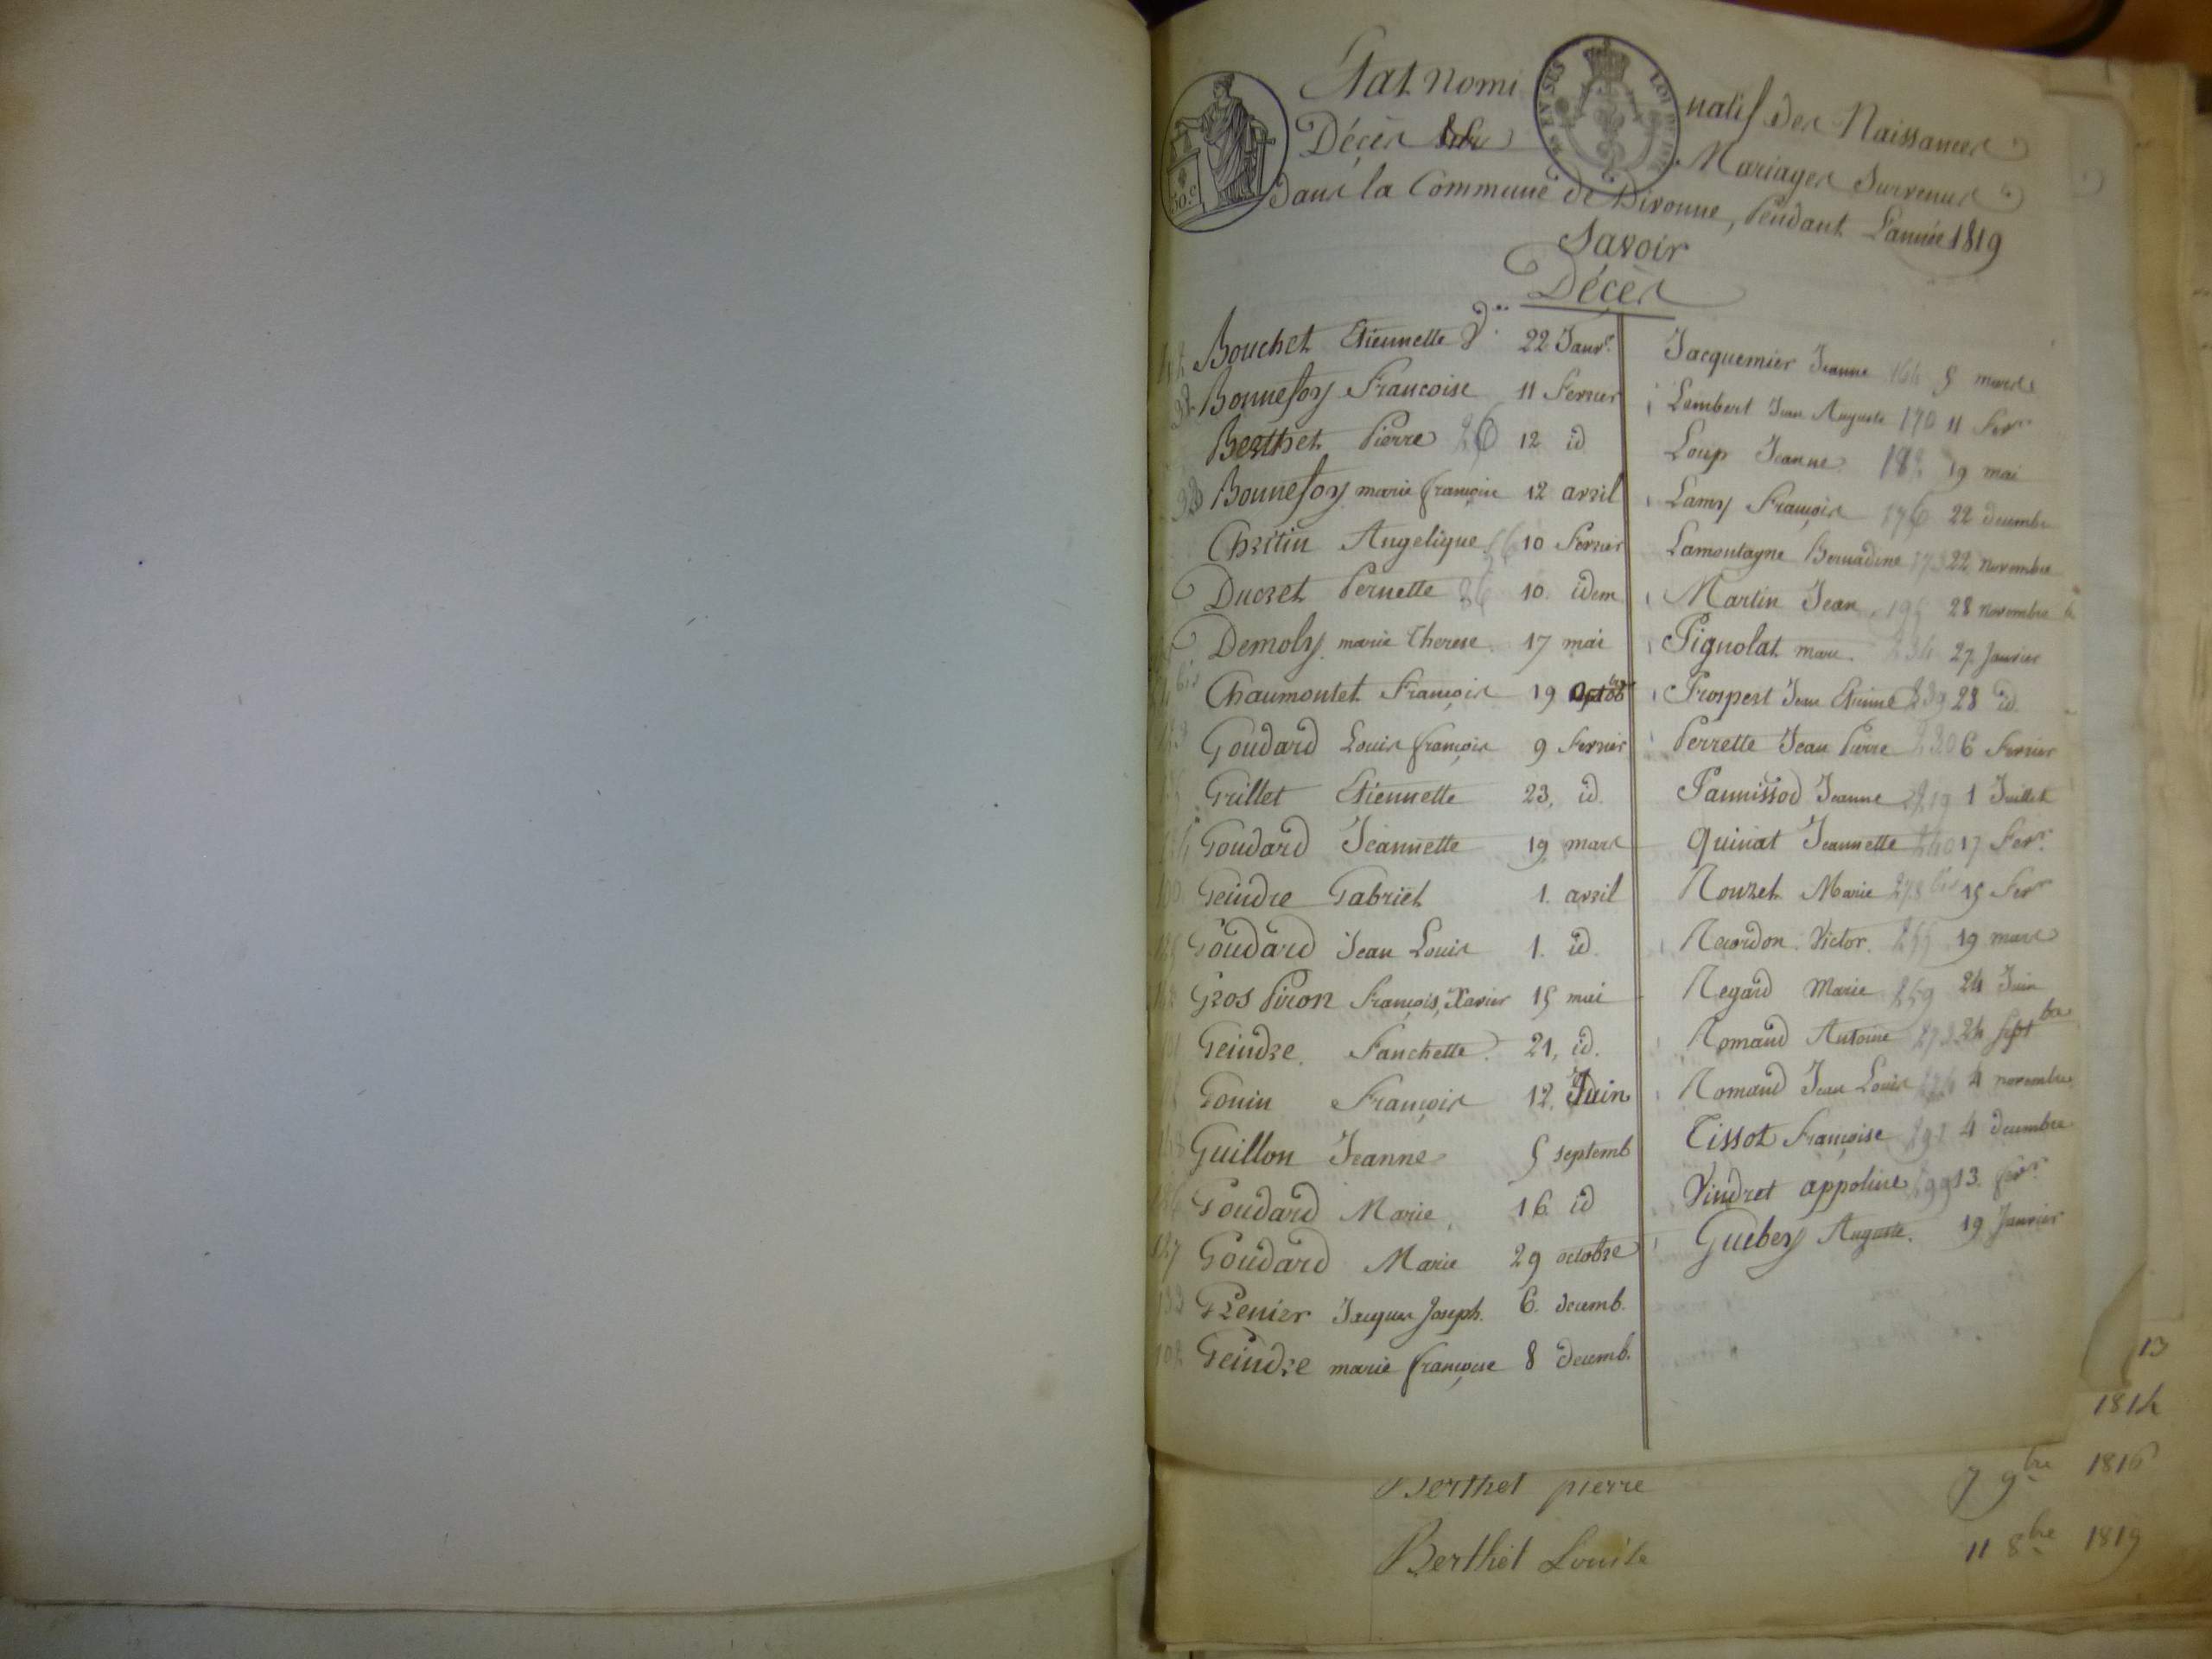 Etat nominatif des Naissances
Décès Mariages Survenus
dans la Commune de Divonne, Pendant L'année 1819
Savoir
Décès
Bouchet Etiennette 22 Janvr.
Bonnefoy Francoise 11 Fevrier
Berthet Pierre 26 12 id
Bonnefoy marie françoise 12 avril
Chretin Angelique 10 Fevrier
Ducret Pernette 86 10. idem
Demoly marie Therese 17 mai
Chaumontet François 19
Goudard Louis françois 9 Fevrier
Grillet Etiennette 23, id.
Goudard Jeannette 19 mars
Geindre Gabriel 1. avril
Goudard Jean Louis 1. id.
Gros Piron François, Xavier 15 mai
Geindre Fanchette 21, id.
Gonin François 12, Juin
Guillon Jeanne 5 septemb
Goudard Marie 16 id
127 Goudard Marie 29 octobre
Grenier Jacques Joseph 6. decemb.
Geindre marie françoise 8 decemb.
Jacquemier Jeanne 5 mars
Lambert Jean Auguste 170 11 Fevr
Loup Jeanne 19 mai
Lamy François 176 22 decembre
Lamontagne Bernadine 173 22 novembre
Martin Jean 195 28 novembre
Pignolat marc 234 27 Janvier
Prospert Jean Etienne 239 28 id.
Perrette Jean Pierre 220 6 Fevrier
Pannissod Jeanne 219 1 Juillet
Quinat Jeannette 240 17 Fevr.
Rouzet Marie 278 bis 15 Fevr
Reverdon Victor. 19 mars
Regard Marie 259 24 Juin
Romand Antoine 273 24 septbre
Romand Jean Louis 4 novembre
Tissot Françoise 292 4 decembre
Vindret appoline 299 13. fevr.
Guebey Auguste. 19 Janvier
50.c
LOI DE
13
1814
Berthet pierre 7 9bre 1816
Berthet Louise 11 8bre 1819